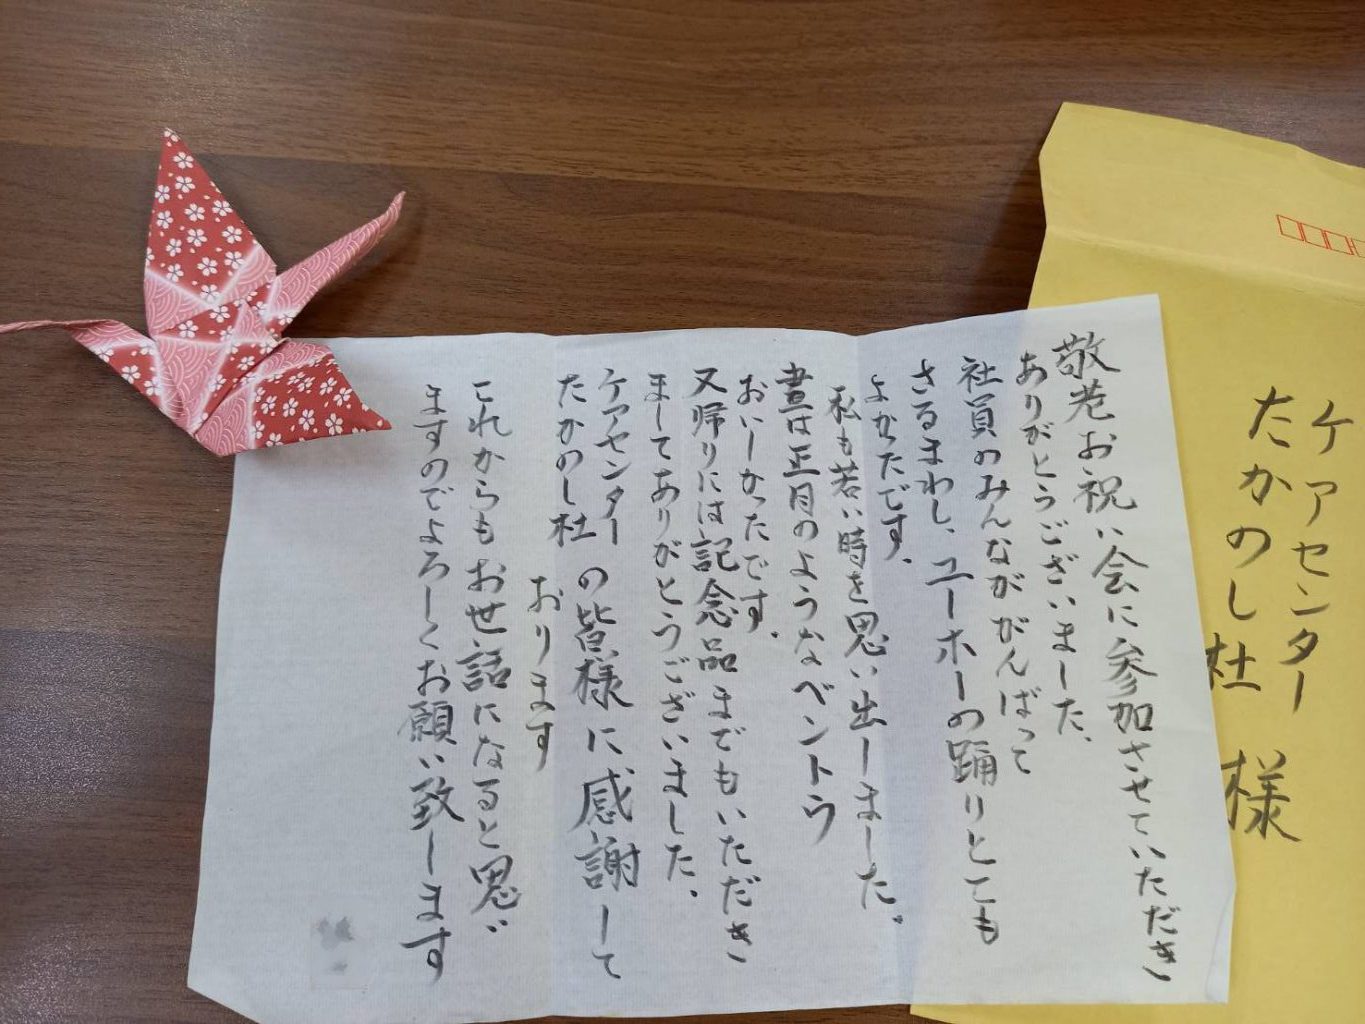 敬老お祝い会に参加させていただき
ありがとうございました、
社員のみんなががんばって
さるまわし、ユーホーの踊りとても
よかたです.
私も若い時を思い出しました。
昼は正月のようなベントウ
おいしかったです.
又帰りには記念品までもいただき
ましてありがとうございました.
ケアセンター
たかのし杜の皆様に感謝して
おります
これからもお世話になると思い
ますのでよろしくお願い致します
ケアセンター
たかのし杜 様